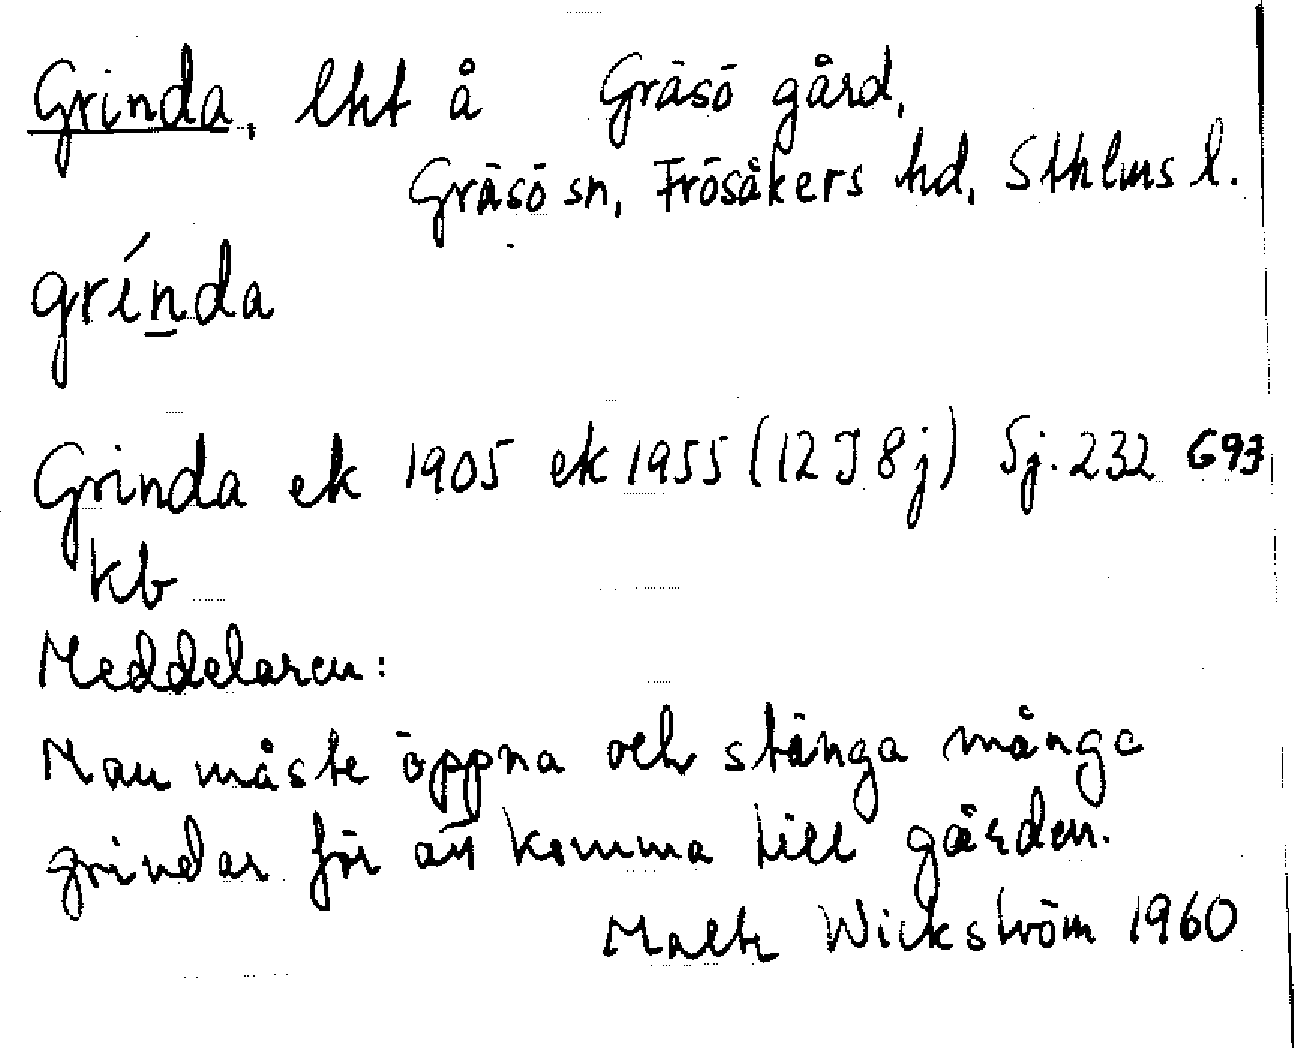 Grinda, lht å Gräsö gård,
Gräsö sn, Frösåkers hd, Sthlms l.
grínda
Grinda ek 1905 ek 1955 (12 I 8 j) Sj. 232 693
kb
Meddelaren:
Man måste öppna och stänga många
grindar för att komma till gården.
Malte Wickström 1960